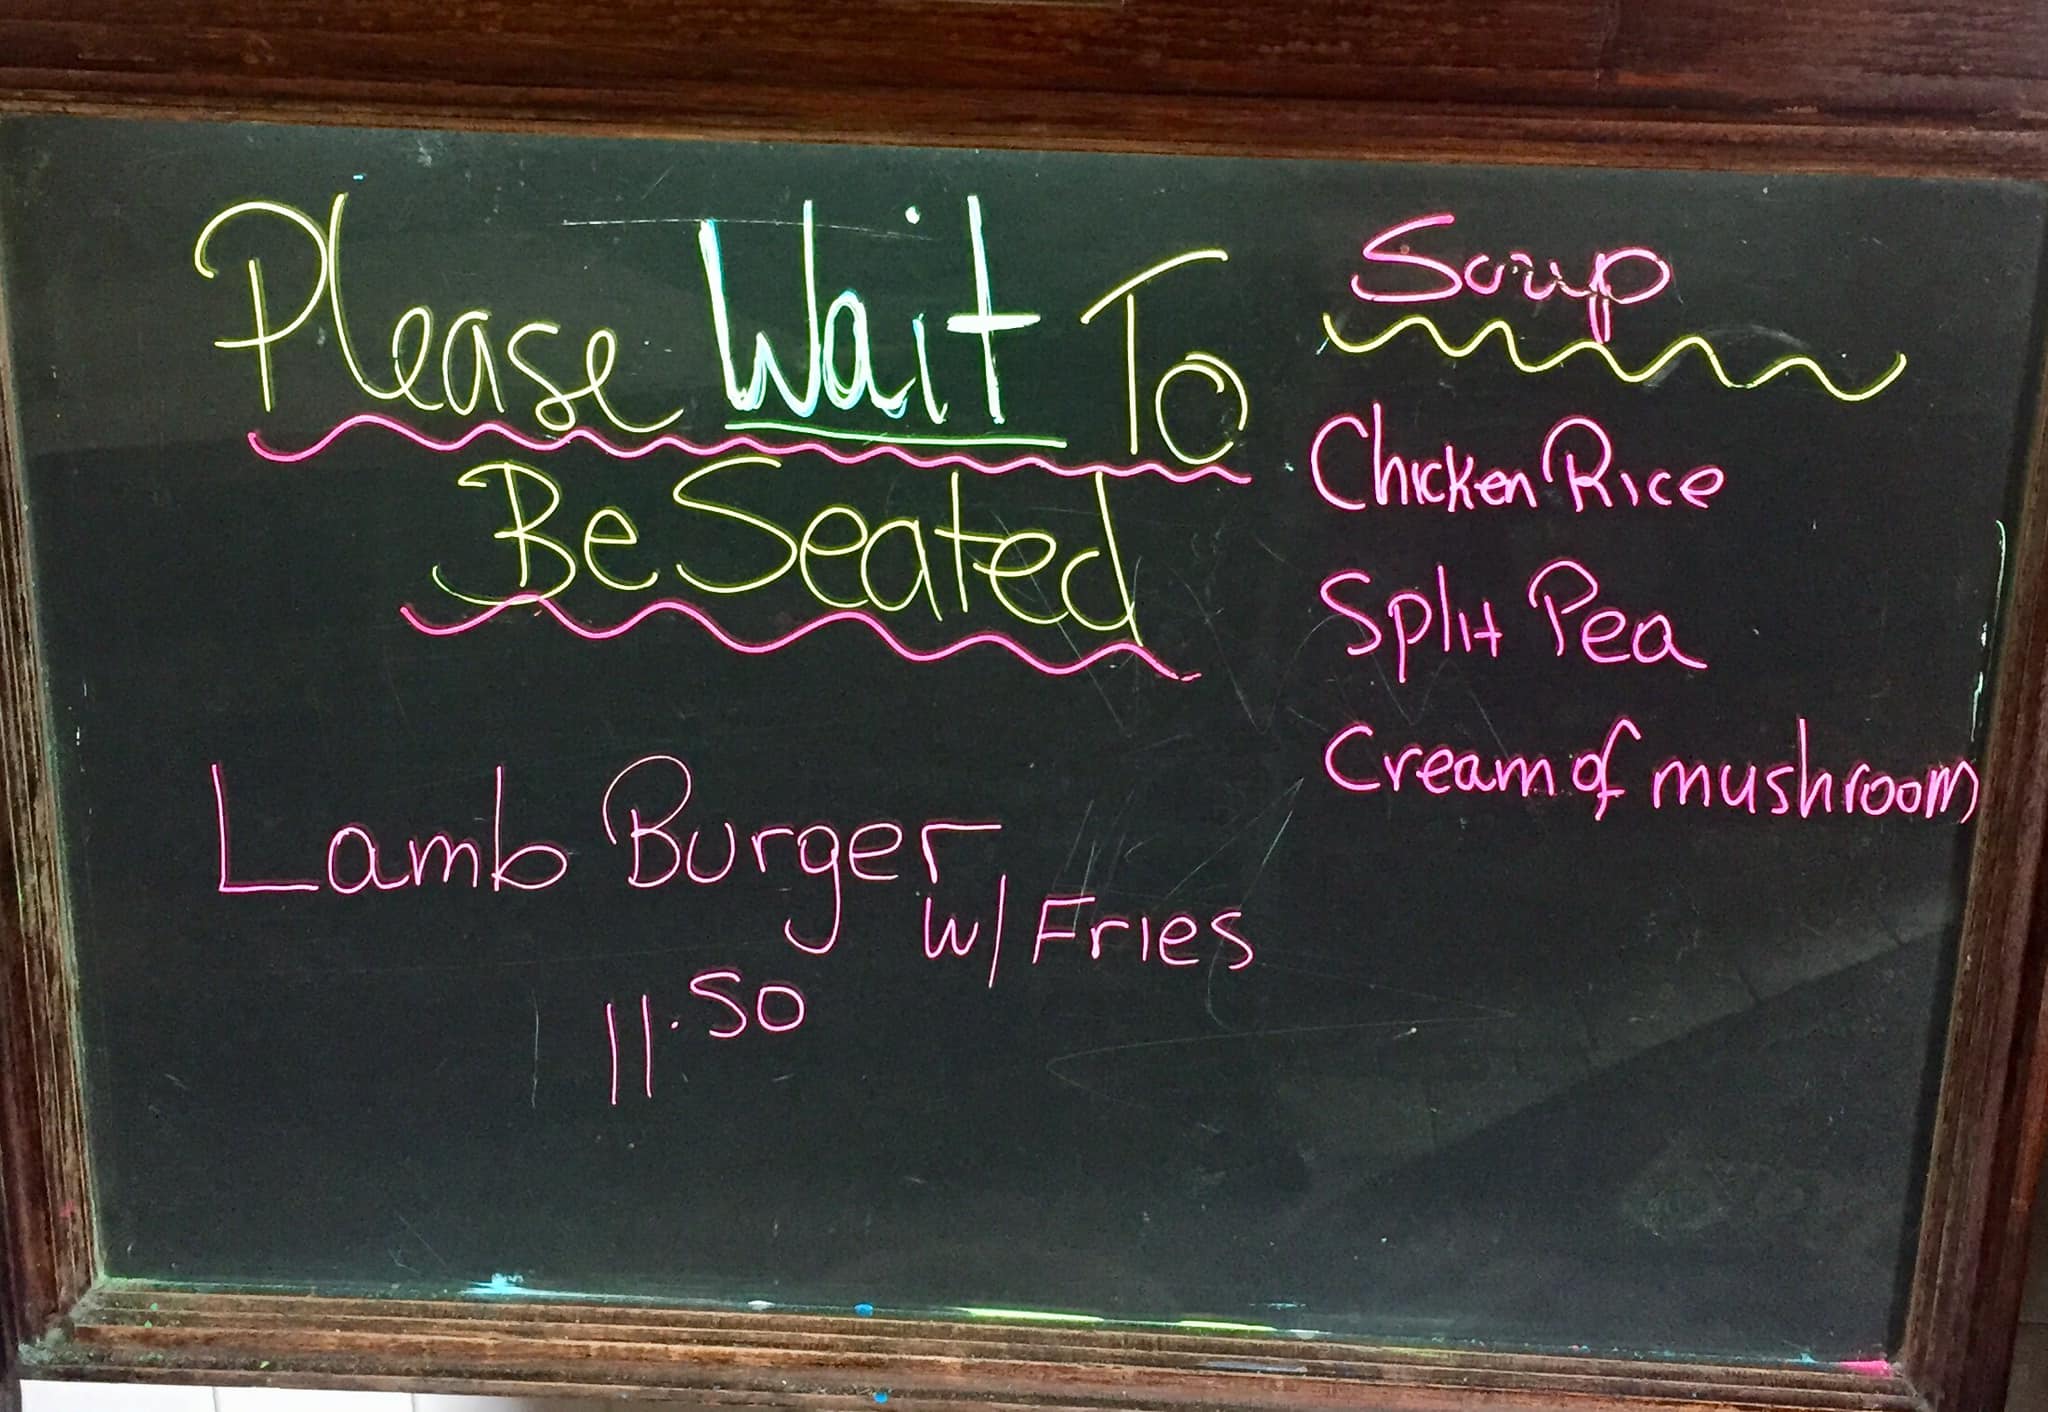 Please Wait To
Be Seated
Lamb Burger
w/ Fries
11.50
Soup
Chicken Rice
Split Pea
Cream of mushroom